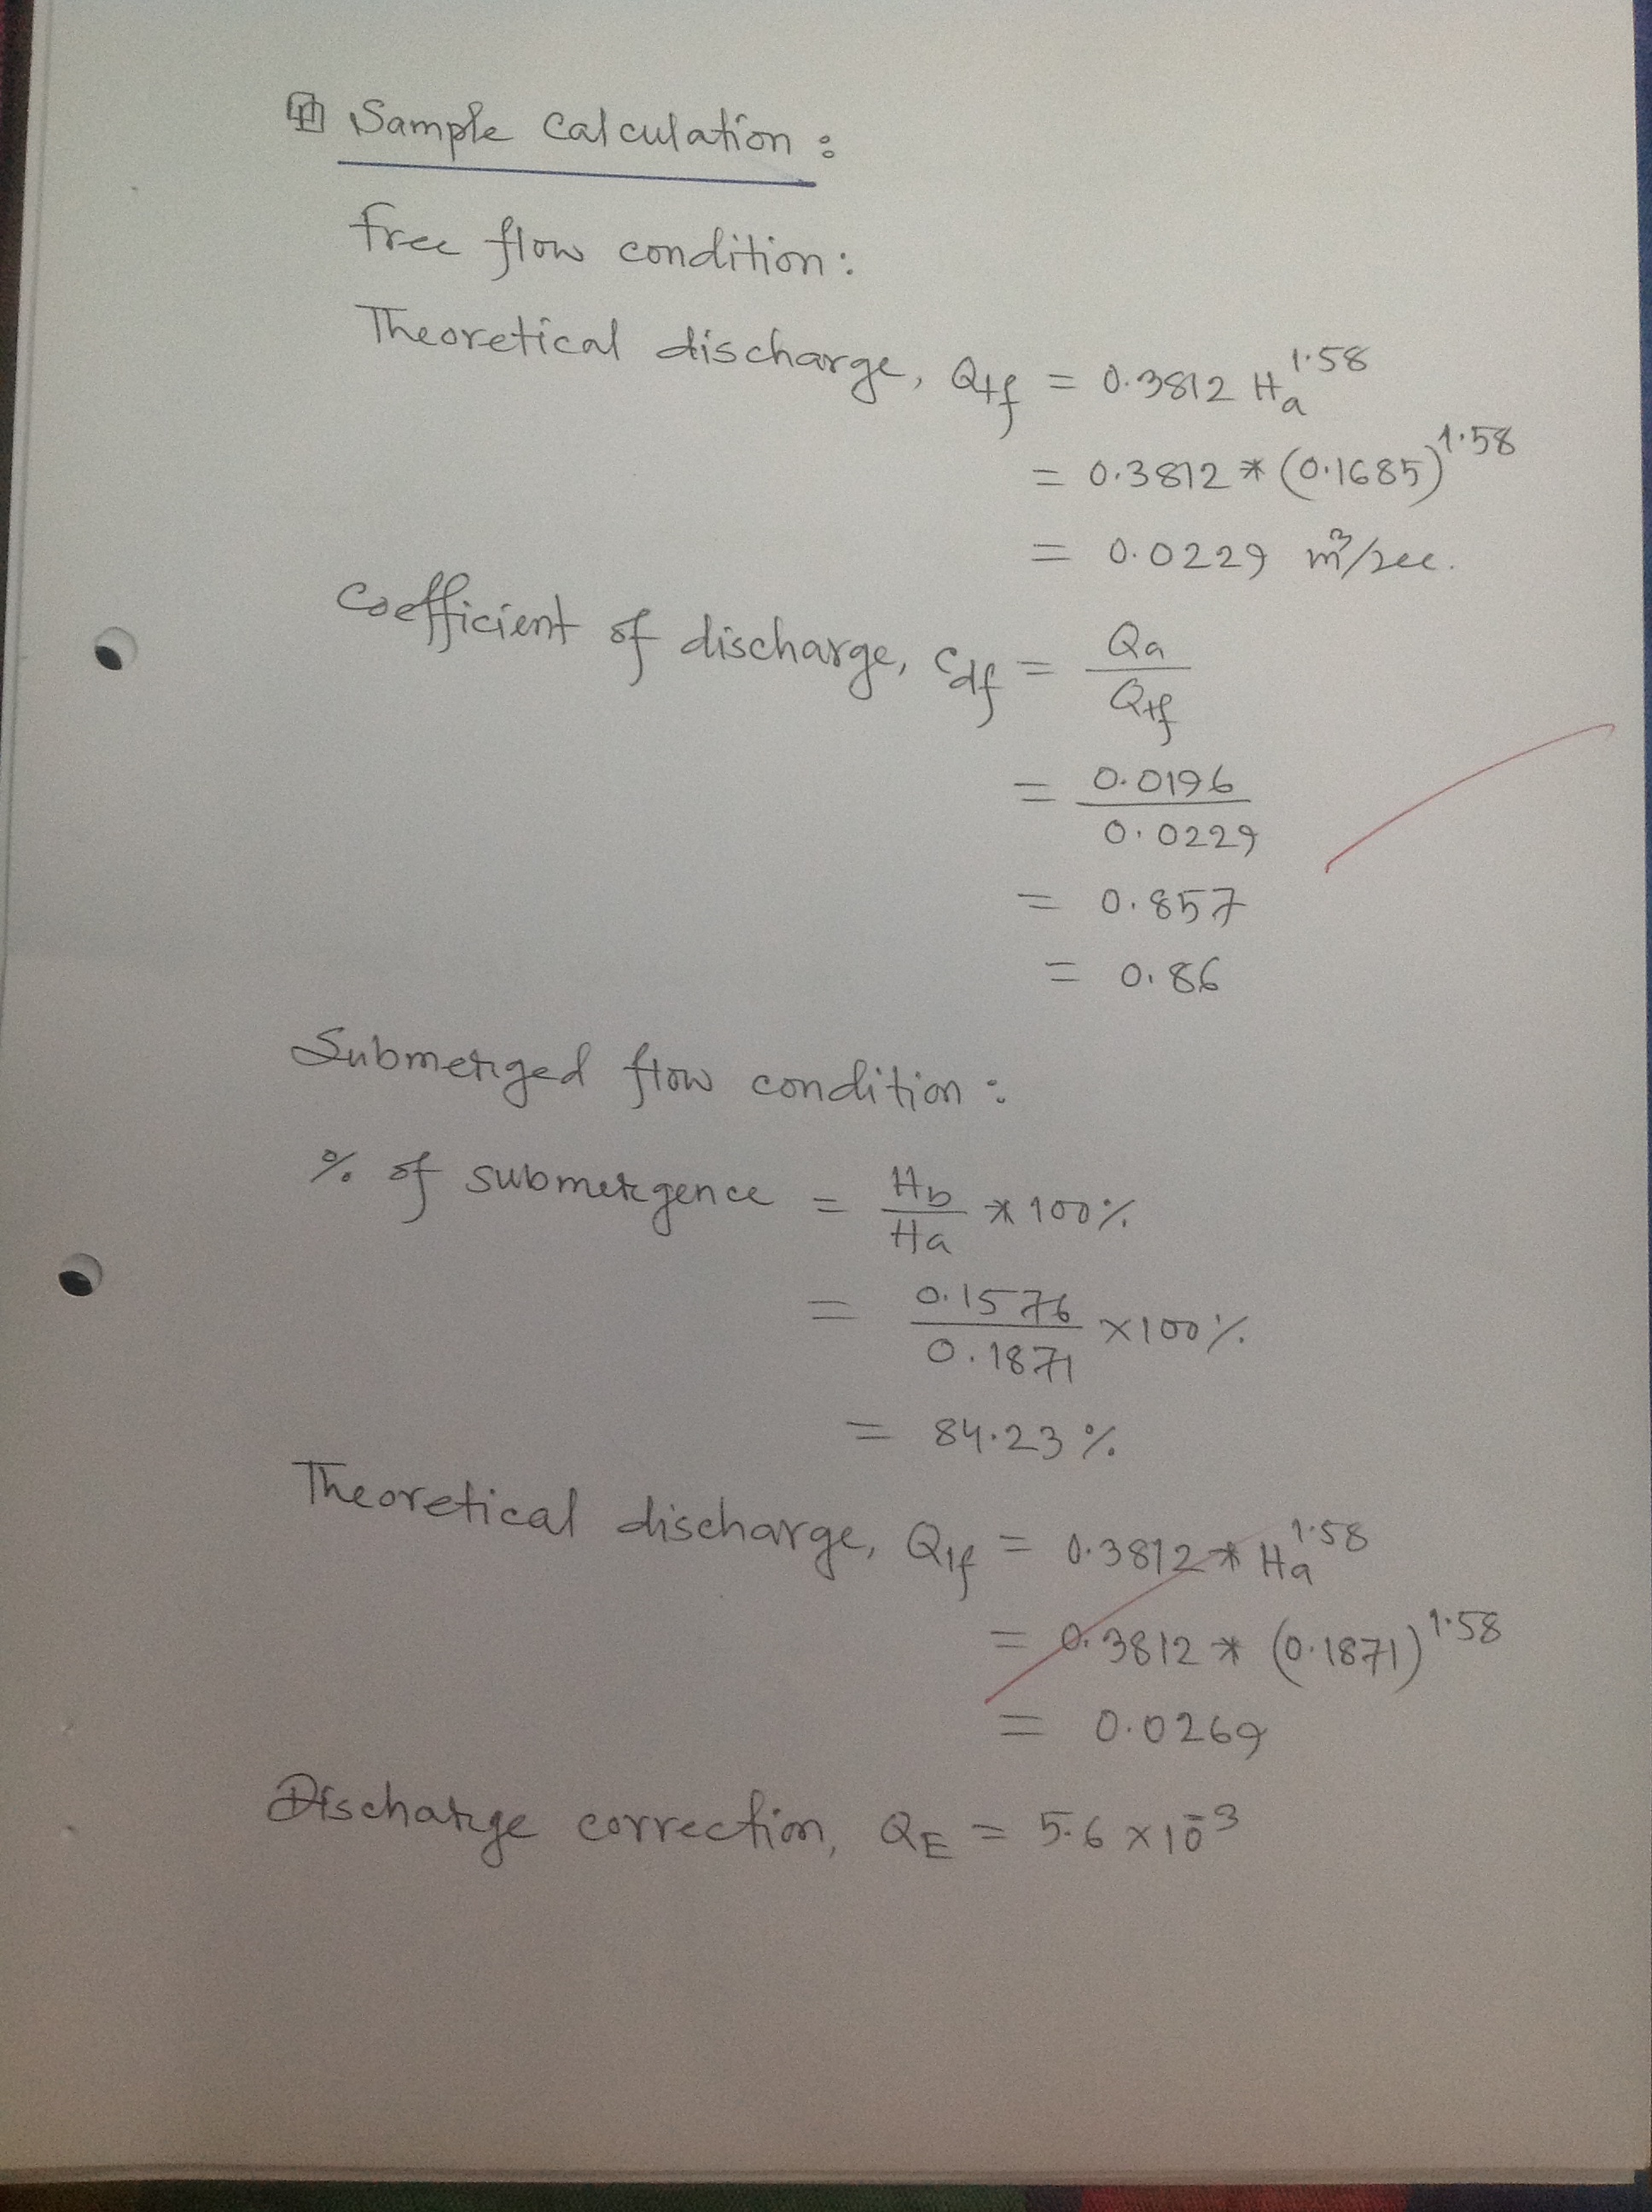 Sample calculation :
free flow condition :
Theoretical discharge, Qtf = 0.3812 Ha^1.58
= 0.3812 * (0.1685)^1.58
= 0.0229 m³/sec.
Coefficient of discharge, Cdf = Qa / Qtf
= 0.0196 / 0.0229
= 0.857
= 0.86
Submerged flow condition :
% of submergence = Hb / Ha * 100%
= 0.1576 / 0.1871 × 100%
= 84.23 %
Theoretical discharge, Qtf = 0.3812 * Ha^1.58
= 0.3812 * (0.1871)^1.58
= 0.0269
Discharge correction, QE = 5.6 × 10^-3